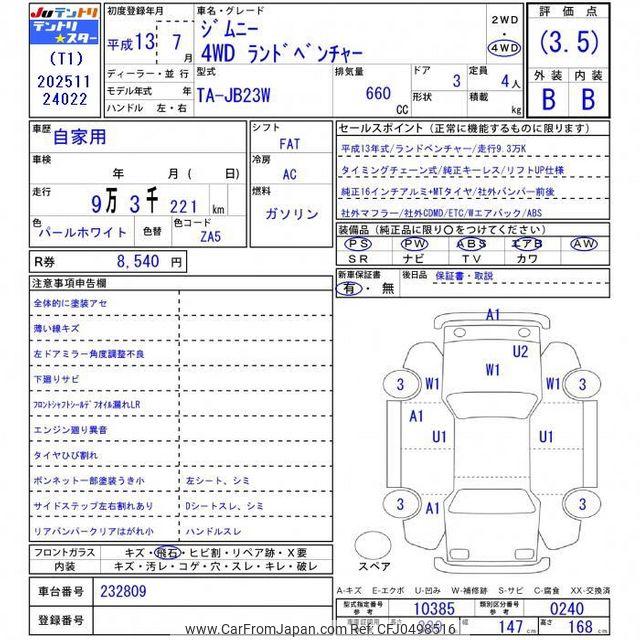 JUテントリ
テントリ
★スター
(T1)
202511
24022
初度登録年月
平成 13 年 7 月
ディーラー・並行
モデル年式 年
ハンドル 左・右
車名・グレード
ジムニー
4WD ランドベンチャー
2WD
4WD
型式
TA-JB23W
排気量
660 CC
ドア 3
形状
定員 4人
積載 kg
評価点
(3.5)
外装 内装
B B
車歴
自家用
車検
年 月 ( 日)
走行
9万 3千 221 km
色
パールホワイト
色替
色コード
ZA5
シフト
FAT
冷房
AC
燃料
ガソリン
R券 8,540 円
セールスポイント (正常に機能するものに限ります)
平成13年式/ランドベンチャー/走行9.3万K
タイミングチェーン式/純正キーレス/リフトUP仕様
純正16インチアルミ+MTタイヤ/社外バンパー前後
社外マフラー/社外CDMD/ETC/Wエアバック/ABS
装備品 (純正品に限り○をつけてください)
PS PW ABS エアB AW
SR ナビ TV カワ
新車保証書
有・無
後日品 保証書・取説
注意事項申告欄
全体的に塗装アセ
薄い線キズ
左ドアミラー角度調整不良
下廻りサビ
フロントシャフトシールデフオイル漏れLR
エンジン廻り異音
タイヤひび割れ
ボンネット一部塗装うき小 左シート、シミ
サイドステップ左右割れあり Dシートスレ、シミ
リアバンパークリアはがれ小 ハンドルスレ
フロントガラス キズ・飛石・ヒビ割・リペア跡・X要
内装 キズ・汚レ・コゲ・穴・スレ・キレ・破レ
車台番号 232809
登録番号
A1
U2
W1
3 W1 W1 3
A1
U1 U1
3 A1 3
スペア
A-キズ E-エクボ U-凹み W-補修跡 S-サビ C-腐食 XX-交換済
型式指定番号 10385 類別区分番号 0240
長さ cm 幅 147 cm 高さ 168 cm
www.CarFromJapan.com CFJ0498516